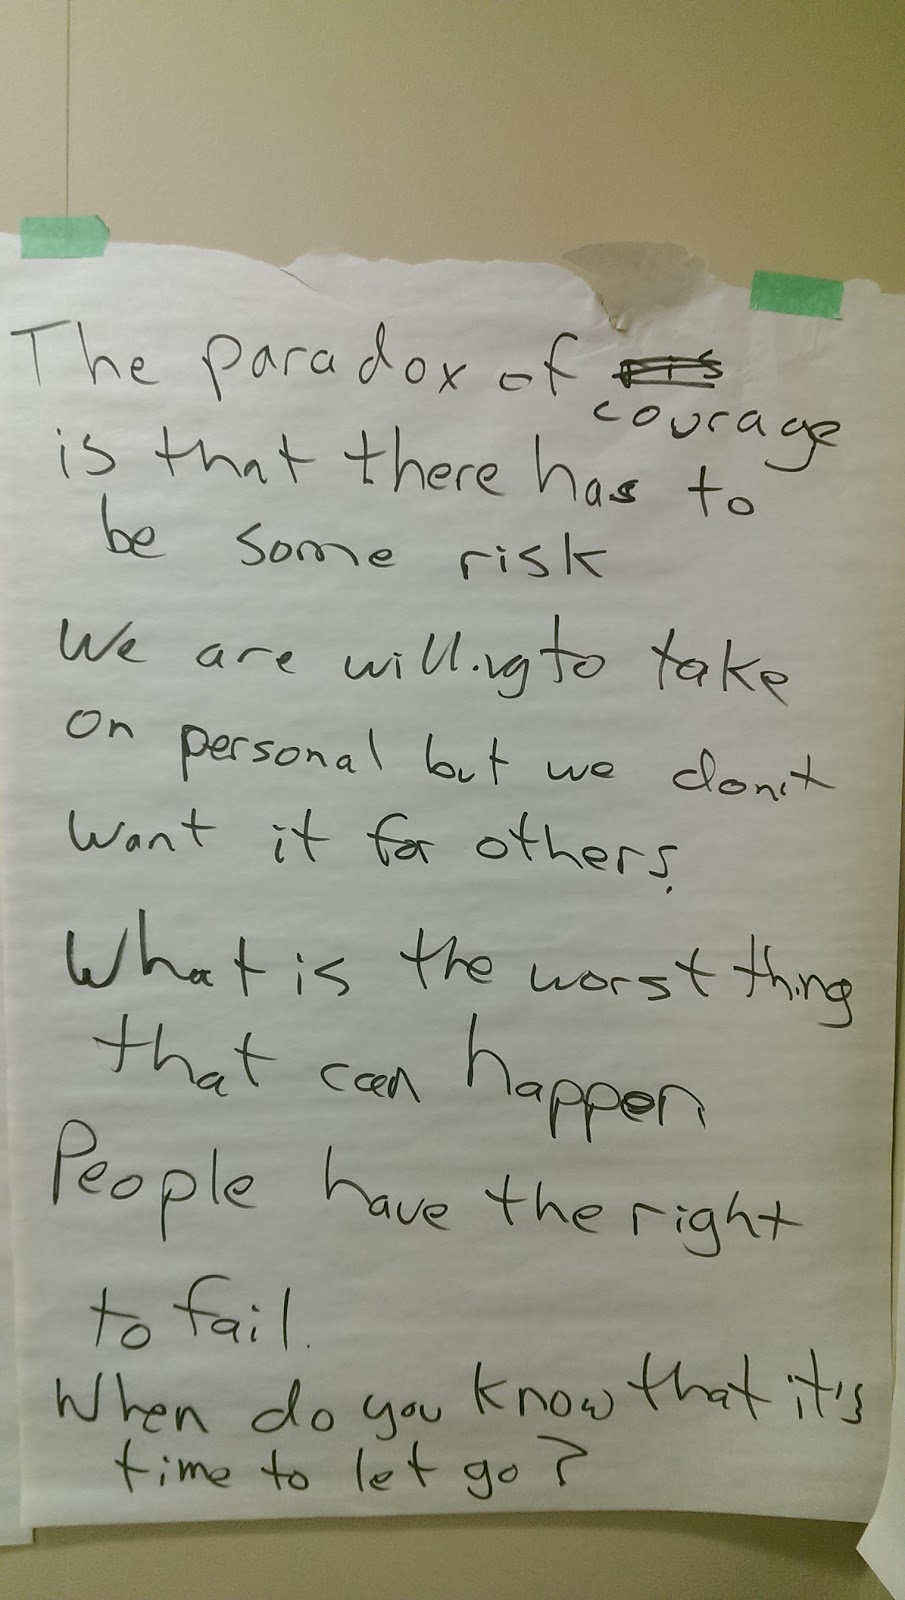 The paradox of
courage
is that there has to
be some risk
We are willing to take
on personal but we don't
want it for others.
What is the worst thing
that can happen
People have the right
to fail.
When do you know that it's
time to let go?